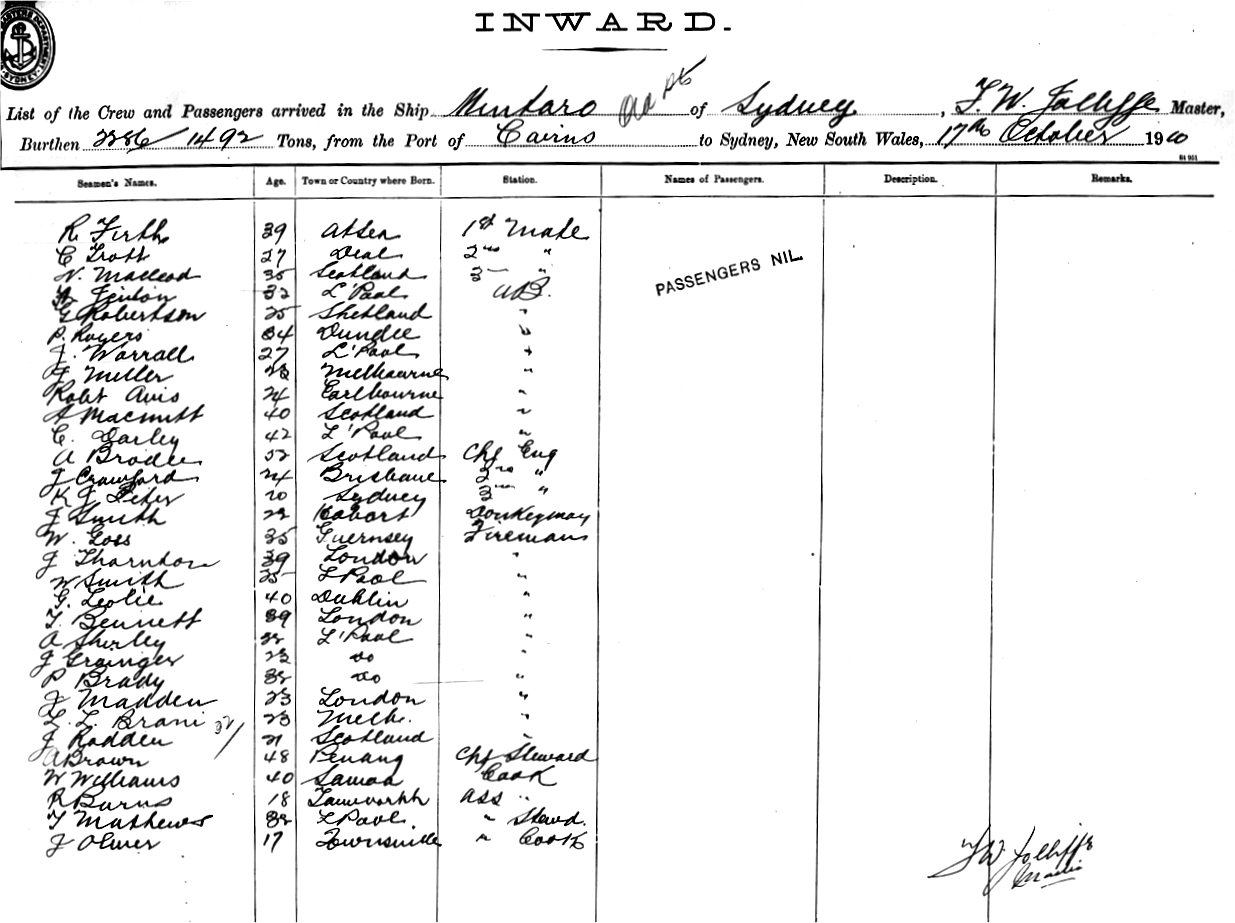 INWARD.
List of the Crew and Passengers arrived in the Ship Mintaro of Sydney, T. W. Jolliffe Master,
Burthen 2286/1492 Tons, from the Port of Cairns to Sydney, New South Wales, 17th October 1900
Seamen's Names. Age. Town or Country where Born. Station. Names of Passengers. Description. Remarks.
R. Firth 39 At Sea 1st Mate
C Trott 27 Deal 2nd "
N. Macleod 35 Scotland 3 "
32 L'Pool AB.
G Robertson 25 Shetland "
P. Rogers 34 Dundee "
J. Worrall 27 L'Pool "
J Miller 23 Melbourne "
Robt Avis 24 Earlbourne "
A Macnutt 40 Scotland "
C. Darley 42 L'Pool "
A Brodie 52 Scotland Chf Eng
J Crawford 24 Brisbane 2nd "
K J Peter 20 Sydney 3 "
J Smith 22 Hobart Donkeyman
W. Goss 35 Guernsey Firemans
J Thornton 39 London "
W Smith 25 LPool "
G. Leslie 40 Dublin "
T. Bennett 39 London "
A Shirley L'Pool "
J Grainger 23 do "
P Brady 38 do "
J Madden 23 London "
L. L. Brani 23 Melb. "
J Radden 21 Scotland "
A Brown 48 Penang Chf Steward
W Williams 40 Samoa Cook
R Burns 18 Tamworth Ass "
T Mathews 38 LPool. " Stewd.
J Oliver 17 Townsville " Cook
PASSENGERS NIL.
T W Jolliffe